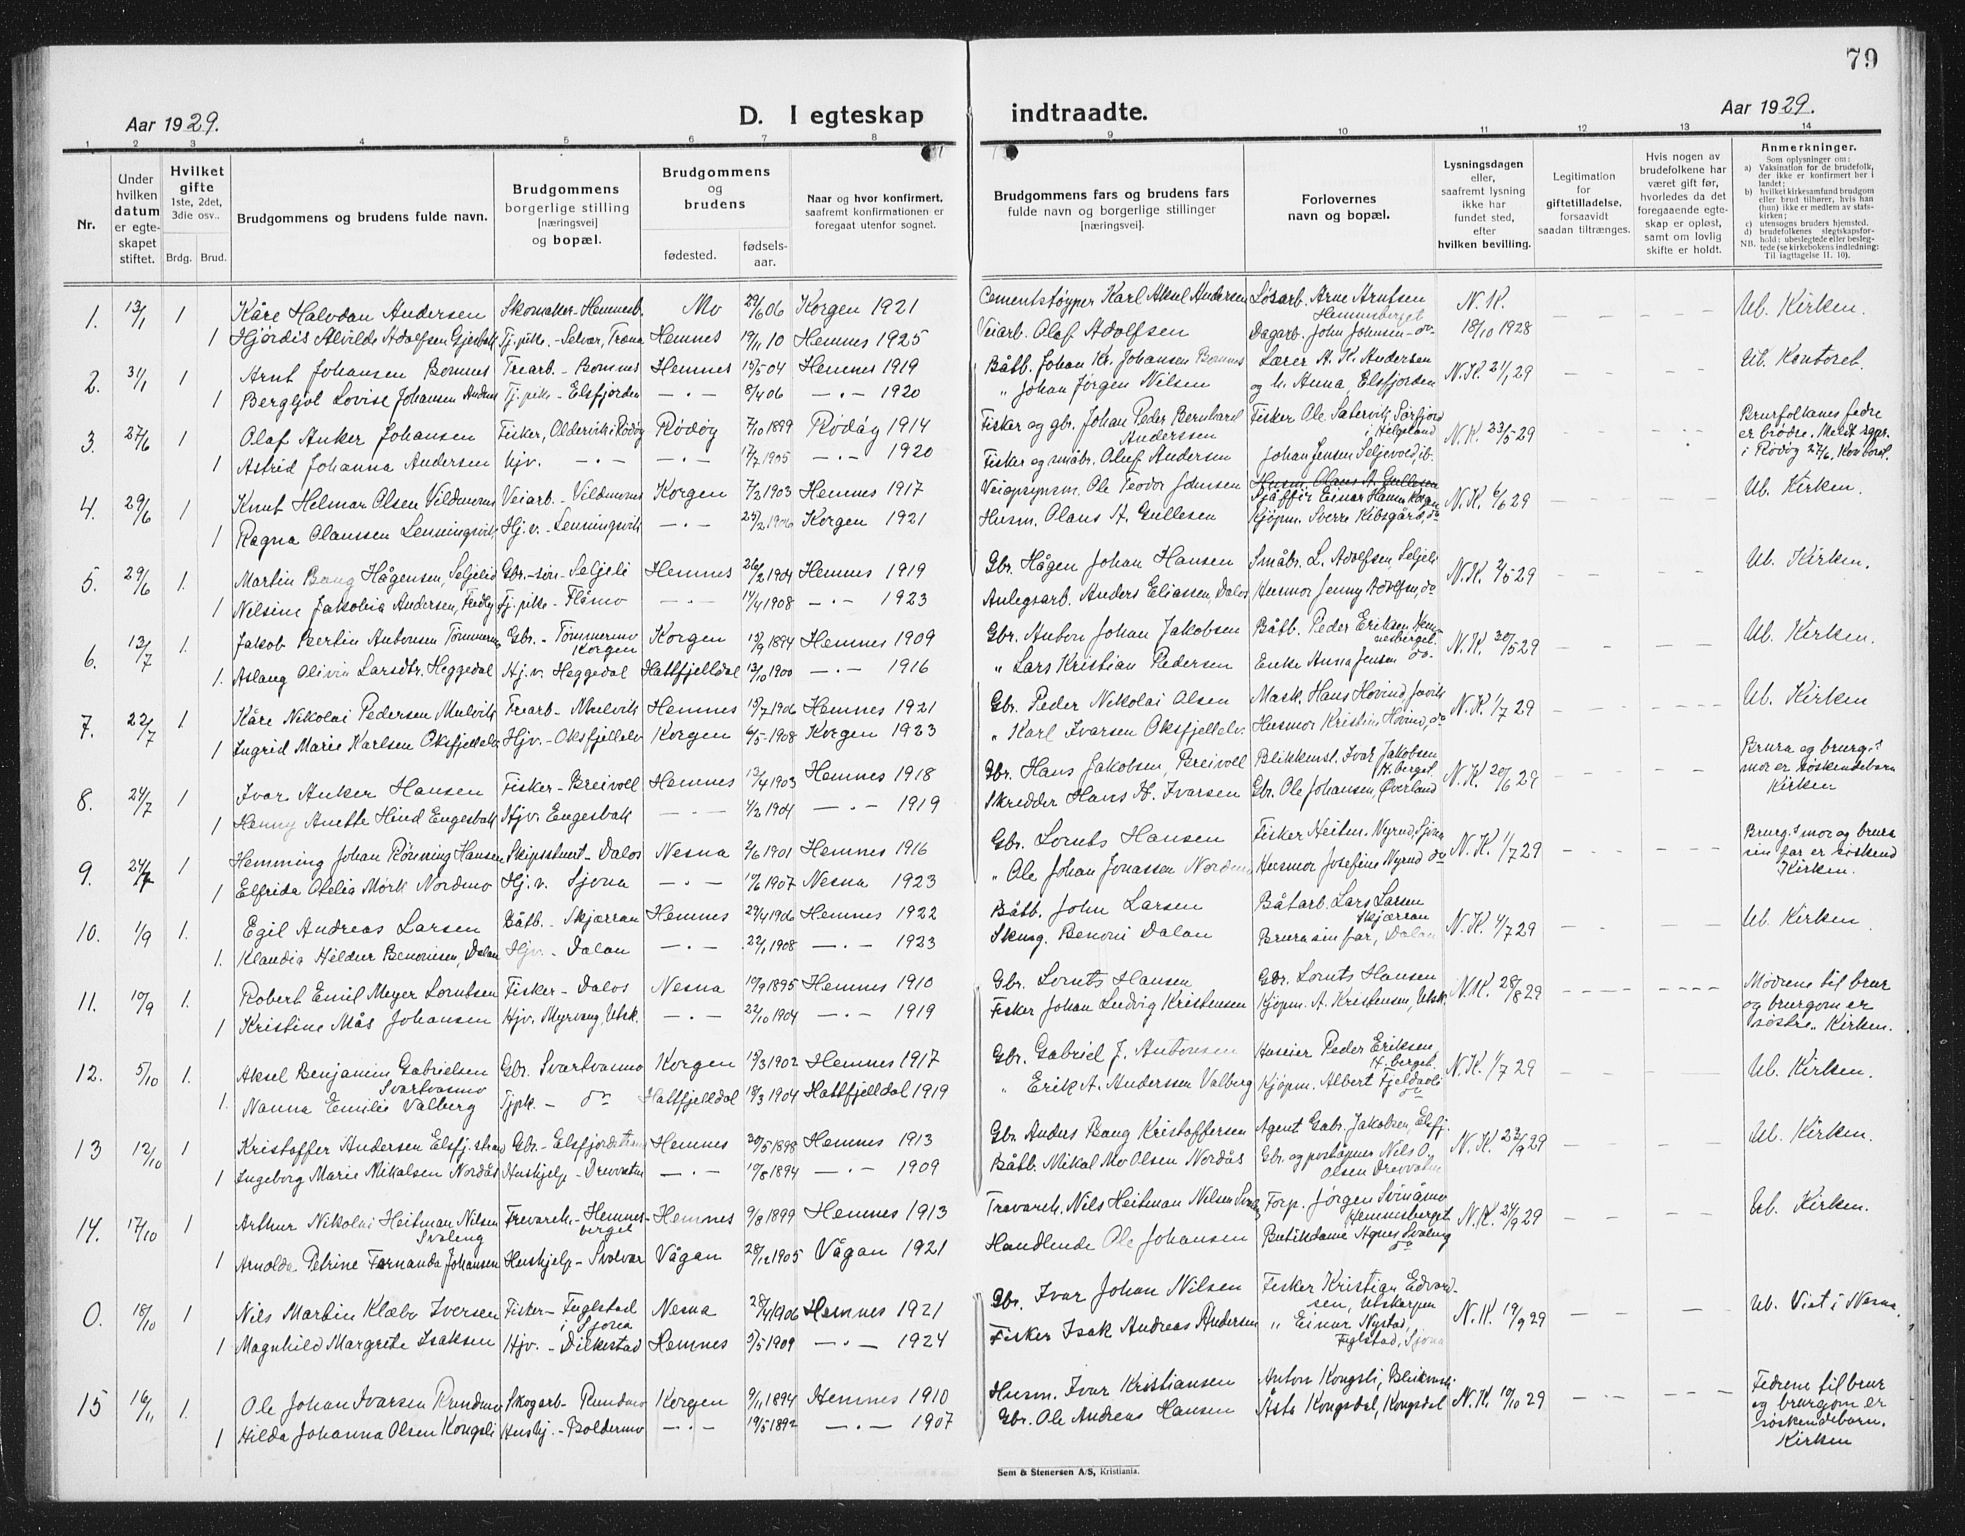 79
Aar 1929.
D. I egteskap indtraadte.
Aar 1929.
1 2 3 4 5 6 7 8 9 10 11 12 13 14
Nr.
Under hvilken datum er egteskapet stiftet.
Hvilket gifte 1ste, 2det, 3die osv..
Brdg. Brud.
Brudgommens og brudens fulde navn.
Brudgommens borgerlige stilling [næringsvei] og bopæl.
Brudgommens og brudens
fødested.
fødsels-aar.
Naar og hvor konfirmert, saafremt konfirmationen er foregaat utenfor sognet.
Brudgommens fars og brudens fars fulde navn og borgerlige stillinger [næringsvei].
Forlovernes navn og bopæl.
Lysningsdagen eller, saafremt lysning ikke har fundet sted, efter hvilken bevilling.
Legitimation for giftetilladelse, forsaavidt saadan tiltrænges.
Hvis nogen av brudefolkene har været gift før, hvorledes da det foregaaende egteskap er opløst, samt om lovlig skifte er holdt.
Anmerkninger.
Som oplysninger om:
a) Vaksination for de brudefolk, der ikke er konfirmert her i landet;
b) hvilket kirkesamfund brudgom eller brud tilhører, hvis han (hun) ikke er medlem av statskirken;
c) utensogns bruders hjemsted.
d) brudefolkenes slegtskapsforhold: ubeslegtede eller beslegtede (se kirkebokens indledning: Til iagttagelse II. 10).
NB.
1. 13/1 1 Kåre Halvdan Andersen Skomaker - Hemnesb. Mo 29/6 06 Korgen 1921 Cementstøyper Karl Aksel Andersen Løsarb. Arne Arntsen Hemnesberget N.K. Ub. Kirken.
1 Hjørdis Alvilde Adolfsen Tj.pike - Selvær, Træna Hemnes 19/11 10 Hemnes 1925 Veiarb. Olaf Adolfsen Dagarb. John Johnsen - do 18/10 1928
2. 31/1 1 Arnt Johansen Bomnes Trearb. - Bomnes Hemnes 15/5 04 Hemnes 1919 Båtb. Johan Kr. Johansen Bomnes Lærer A. K. Andersen N.K. 21/1 29 Ub. Kontoret.
1 Bergljot Lovise Johansen Tj.pike - Elsfjorden - . - 8/4 06 - . - 1920 " Johan Jørgen Nilsen og h. Anna, Elsfjorden
3. 27/6 1 Olaf Anker Johansen Fisker, Oldervik i Rødøy Rødøy 7/10 1899 Rødøy 1914 Fisker og gbr. Johan Peder Bernhard Anderssen Fisker Ole Sætervik, Sørfjord i Helgeland N.K. 23/5 29 Brurfolkanes fedre er brødre. i Rødøy 27/6. Kontoret.
1 Astrid Johanna Andersen hjv. - . - - . - 17/7 1905 - . - 1920 Fisker og småbr. Oluf Andersen Johan Jensen Seljevold, ib.
4. 29/6 1 Knut Helmar Olsen Veiarb. - Korgen 7/2 1903 Hemnes 1917 Veiopsynsm. Ole Teodor Johnsen Husm. Olaus A. Gullesen Sjåffør Einar Hamn Korgen N.K. 6/6 29 Ub. Kirken.
1 Ragna Olaussen Leiningsvik Hj.v. - Leiningsvik - . - 25/2 1906 Korgen 1921 Husm. Olaus A. Gullesen Kjøpm. Sverre Kibsgård, do
5. 29/6 1. Martin Bang Hågensen, Seljelid Gbr.-søn - Seljeli Hemnes 26/2 1904 Hemnes 1919 Gbr. Hågen Johan Hansen Småbr. L. Adolfsen, Seljeli N.K. 2/5 29 Ub. Kirken.
1 Nilsine Jakobia Andersen, Tj.pike - Flåmo - . - 14/4 1908 - . - 1923 Anlegsarb. Anders Eliassen, Dalos Husmor Jenny Adolfsen, do
6. 13/7 1. Jakob Bertin Antonsen Tømmermo Gbr. - Tømmermo Korgen Korgen 15/9 1894 Hemnes 1909 Gbr. Anton Johan Jakobsen Båtb. Peder Eriksen, Hemnesberget N.K. 20/5 29 Ub. Kirken.
1. Aslaug Olivin Larsdtr. Heggedal Hj.v. Heggedal Hattfjelldal 13/10 1900 - . - 1916 " Lars Kristian Pedersen Enke Anna Jensen do.
7. 22/7 1 Kåre Nikolai Pedersen Mulvik Trearb. - Mulvik Hemnes 15/7 1906 Hemnes 1921 Gbr. Peder Nikolai Olsen Mask. Hans Hovind, N.K. 1/7 29 Ub. Kirken
1 Ingrid Marie Karlsen Oksfjellelv Hjv. - Oksfjellelv Korgen 6/5 1908 Korgen 1923 " Karl Ivarsen Oksfjellelv. Husmor Kristine Hovind, do
8. 24/7 1 Ivar Anker Hansen Fisker - Breivoll Hemnes 13/4 1903 Hemnes 1918 Gbr. Hans Jakobsen, Breivoll Blikkenst. Ivar Jakobsen H.berget N.K. 20/6 29 Brura og brurg.s mor er søskendebarn Kirken
1 Hanny Anette Hind Engesbakk Hjv. Engesbakk - . - 4/2 1904 - . - 1919 Skredder Hans H. Ivarsen Gbr. Ole Johansen, Øverland
9. 24/7 1 Hemming Johan Rønning Hansen Skipsstuert - Dalos Nesna 2/6 1901 Hemnes 1916 Gbr. Lornts Hansen Fisker Heitm. Nyrud, Sjona N.K. 1/7 29 Brurg.s mor og brura sin far er søskend Kirken.
1 Elfrida Otelia Mørk Nordmo Hj.v. Sjona - . - 19/6 1907 Nesna 1923 " Ole Johan Jonassen Nordmo Husmor Josefine Nyrud do
10. 1/9 1. Egil Andreas Larsen Båtb. - Skjærran Hemnes 29/4 1906 Hemnes 1922 Båtb. John Larsen Båtarb. Lars Larsen Skjærran N.K. 4/7 29 Ub. Kirken
1. Klaudia Hildur Benonisen, Dalan Hjv. - Dalan - . - 22/1 1908 - . - 1923 Skmg. Benoni Dalan Brura sin far, Dalan
11. 10/9 1. Robert Emil Meyer Lorntsen Fisker - Dalos Nesna 19/9 1895 Hemnes 1910 Gbr. Lornts Hansen Gbr. Lornts Hansen N.K. 28/8 29 Mødrene til brur og brurgom er søstre. Kirken.
1 Kristine Mås Johansen Hjv. Myrvang, Utsk. - . - 22/10 1904 - . - 1919 Fisker Johan Ludvig Kristensen Kjøpm. A. Kristensen, Utsk.
12. 5/10 1. Aksel Benjamin Gabrielsen Svartvasmo Gbr. Svartvasmo Korgen 15/3 1902 Hemnes 1917 Gbr. Gabriel J. Antonsen Peder Eriksen H.berget. N.K. 1/7 29 Ub. Kirken.
1. Nanna Emilie Valberg Tjpk. - do Hattfjelldal 18/3 1904 Hattfjelldal 1919 " Erik A. Anderssen Valberg Kjøpm. Albert Fjeldavli do
13 12/10 1 Kristoffer Andersen Elsfj.strand Gbr. - Elsfjordstrand Hemnes 20/5 1898 Hemnes 1913 Gbr. Anders Bang Kristoffersen Agent Gab. Jakobsen, Elsfj. N.K. 23/9 29 Ub. Kirken.
1 Ingeborg Marie Mikalsen Nordås Hushjelp - Drevvatne - . - 19/8 1894 - . - 1909 Båtb. Mikal Mo Olsen Nordås Gbr. og poståpner Nils O. Olsen Drevvatne
14. 17/10 1 Arthur Nikolai Heitman Nilsen Svaleng Trevareh. - Hemnesberget Hemnes 9/8 1899 Hemnes 1913 Trevareh. Nils Heitman Nilsen Forp. Jørgen Svinåsmo Hemnesberget N.K. 24/9 29 Ub. Kirken.
1 Arnolda Petrine Fernanda Johansen Hushjelp - Svolvær Vågan 28/12 1905 Vågan 1921 Handlende Ole Johansen Butikdame Agnes Svaleng do
0. 18/10 1 Nils Martin Klæbo Iversen Fisker - Fuglstad i Sjona Nesna 28/4 1906 Hemnes 1921 Gbr. Ivar Johan Nilsen Fisker Kristian Edvardsen, Utskarpen N.K. 19/9 29 Ub. Viet i Nesna.
1 Magnhild Margrete Isaksen Hjv. - Dilkestad Hemnes 5/5 1909 - . - 1924 Fisker Isak Andreas Andersen " Einar Nystad, Fuglstad, Sjona
15 16/11 1. Ole Johan Ivarsen Rundmo Skogarb. - Rundmo Korgen 9/11 1894 Hemnes 1910 Husm. Ivar Kristiansen Anton Kongsli, N.K. 10/10 29 Fedrene til brur og brurgom er søskendebarn. Kirken
1 Hilda Johanna Olsen Kongsli Hushj. - Boldermo - . - 19/5 1892 - . - 1907 Gbr. Ole Andreas Hansen Åsta Kongsdal, Kongsdal
Sem & Stenersen A/S, Kristiania.